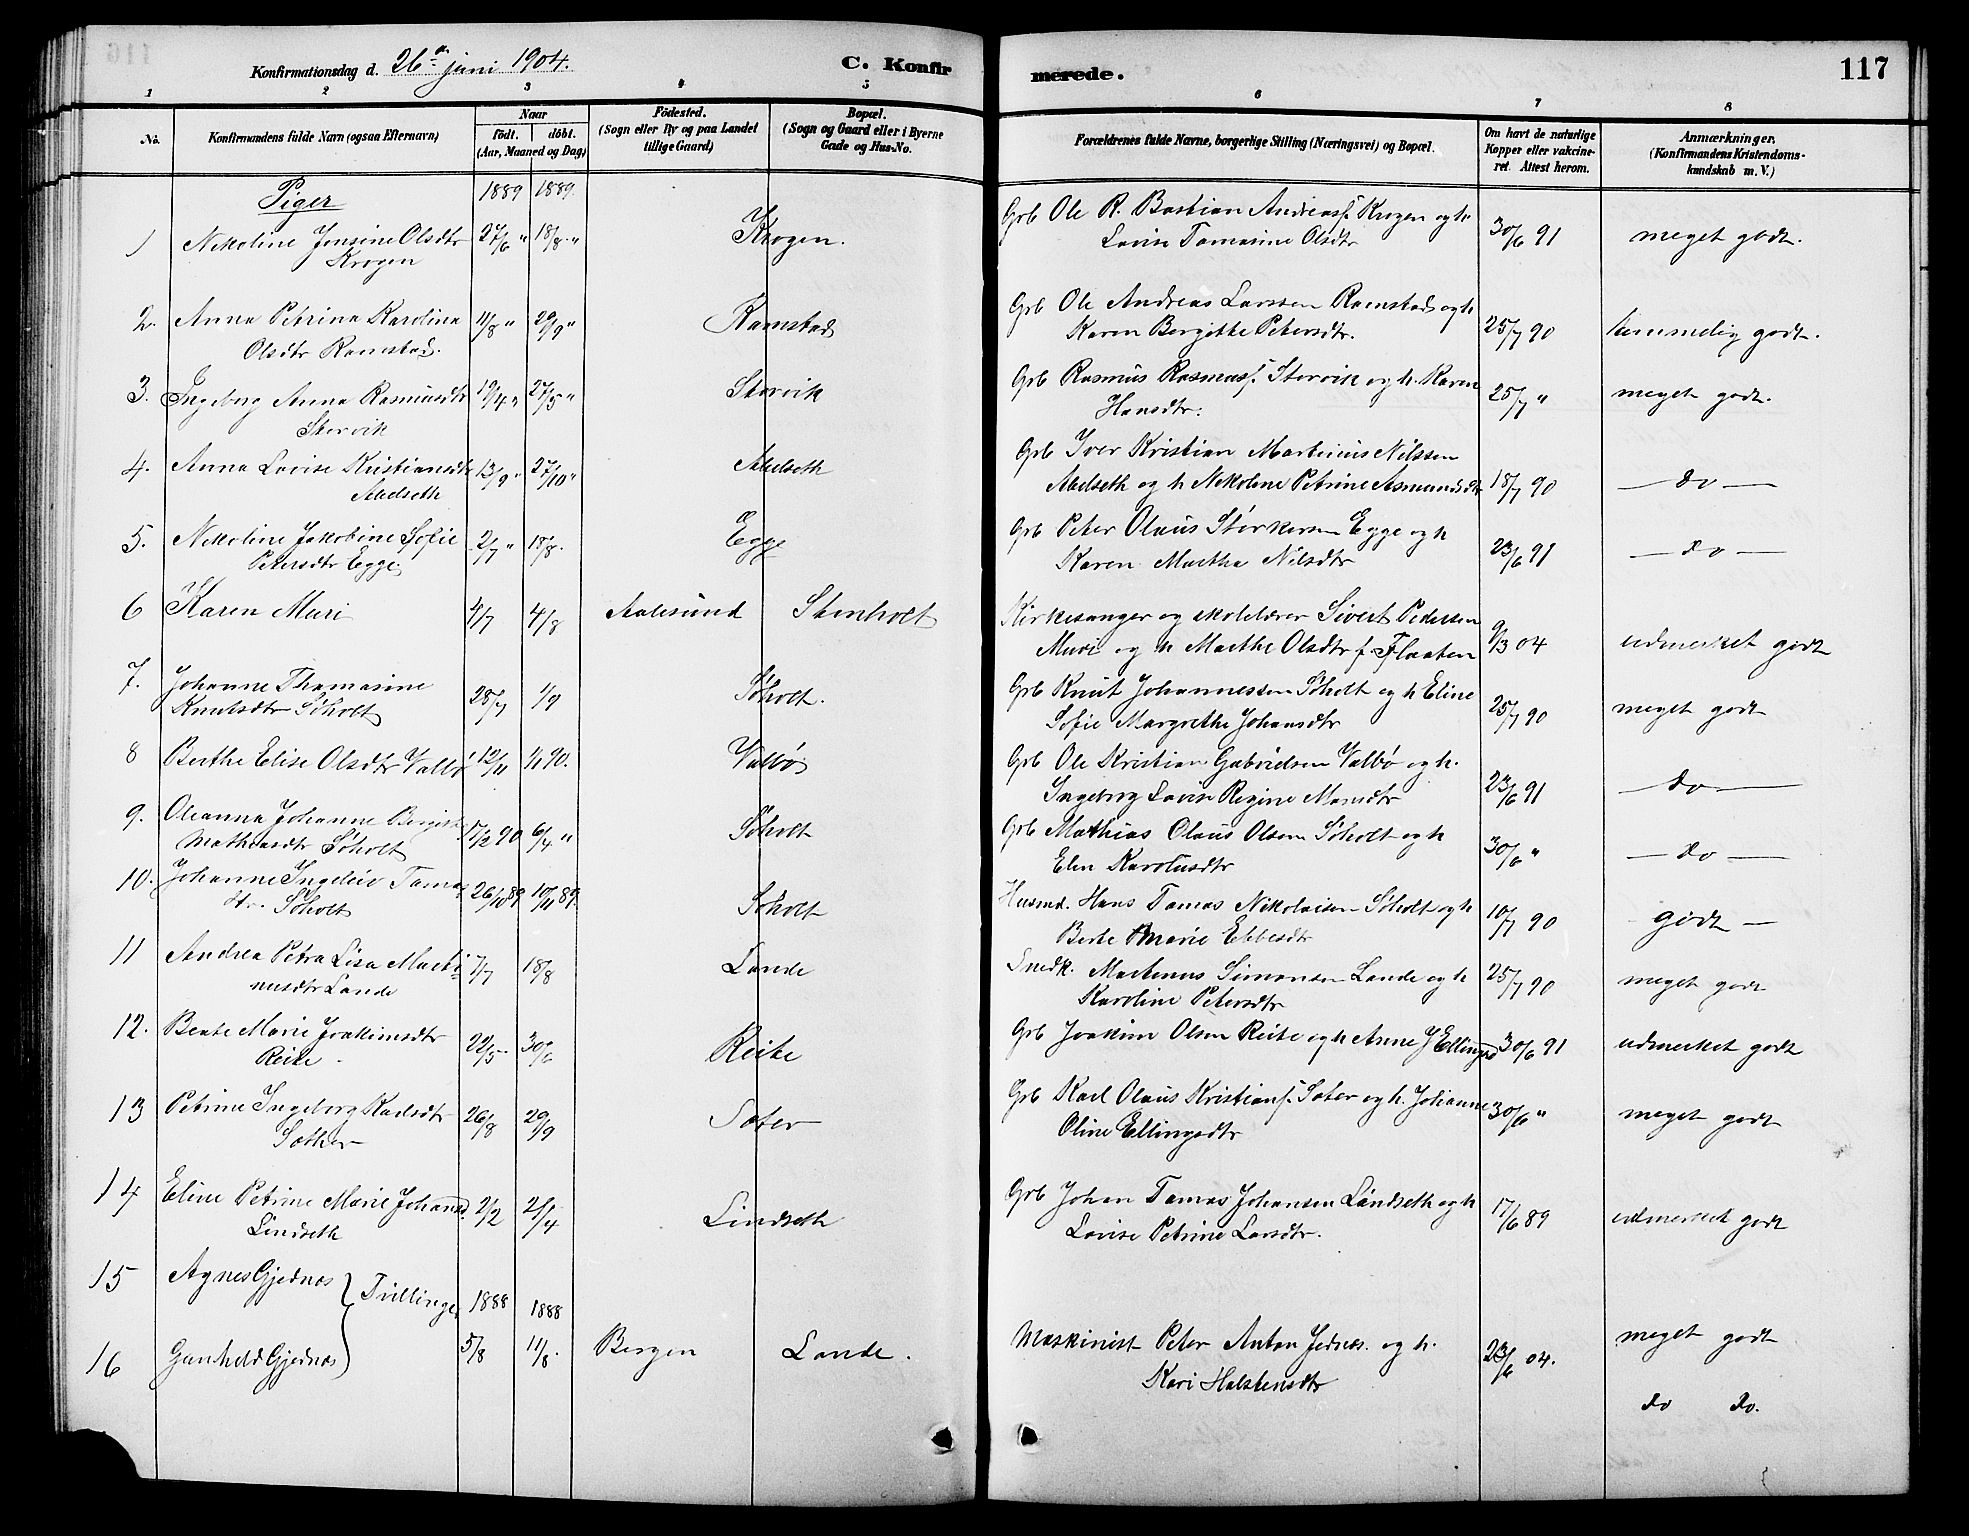 Konfirmationsdag d. 26de juni 1904. C. Konfirmerede. 117
1 2 3 4 5 6 7 8
No. Konfirmandens fulde Navn (ogsaa Efternavn) Naar født. døbt. (Aar, Maaned og Dag) Fødested. (Sogn eller By og paa Landet tillige Gaard) Bopæl. (Sogn og Gaard eller i Byerne Gade og Hus-No. Forældrenes fulde Navne, borgerlige Stilling (Næringsvei) og Bopæl. Om havt de naturlige Kopper eller vakcineret. Attest herom. Anmærkninger. (Konfirmandens Kristendomskundskab m. V.)
Piger 1889 1889.
1 Nikoline Jensine Olsdtr Krogen 27/6 " 18/8 " Krogen. Grb Ole R. Bastian Andreass. Krogen og h Lovise Tomasine Olsdtr 30/6 91 meget godt.
2. Anna Petrina Karolina Olsdtr Ramstad. 11/8 " 29/9 " Ramstad Grb Ole Andreas Larssen Ramstad og h Karen Bergitte Petersdtr. 25/7 90 temmelig godt.
3. Ingeborg Anna Rasmusdtr Storvik 19/4 " 27/5 " Storvik Grb Rasmus Rasmuss. Storvik og h. Karen Hansdtr. 25/7 " meget godt.
4. Anna Lovise Kristiansdtr Abelseth 13/9 " 27/10 " Abelseth Grb Iver Kristian Martinius Nilssen Abelseth og h Nikoline Petrine Asmundsdtr 18/7 90 — do —
5. Nikoline Jakobine Sofie Petersdtr Egge. 2/7 " 18/8. Egge Grb Peter Olaus Størkersen Egge og h Karen Martha Nilsdtr 23/6 91 — do —
6 Karen Muri 4/7 4/8 Aalesund Stenholt Kirkesanger og skolelærer Sivert Pedersen Muri og h Marthe Olsdtr f. Flaaten 9/3 04 udmerket godt
7. Johanne Thomasine Knutsdtr Søholt 28/7 1/9 Søholt. Grb Knut Johannessen Søholt og h Eline Sofie Margrethe Johansdtr 25/7 90 meget godt
8 Berthe Elise Olsdtr Valbø 12/11 1/1 90. Valbø Grb Ole Kristian Gabrielsen Valbø og h. Ingeborg Lovise Regine Monsdtr 23/6 91 — do —
9. Oleanna Johanne Bergit Mathiasdtr Søholt 17/2 90 6/4 " Søholt Grb Mathias Olaus Olsen Søholt og h Elen Karolusdtr 30/6 " — do —
10. Johanne Ingeleiv Tomasdtr. Søholt 26/10 89 10/11 89. Søholt Husmd. Hans Tomas Nikolaisen Søholt og h Berte Marie Ebbesdtr 10/7 90 godt —
11 Andrea Petra Lisa Martinusdtr Lande 7/7 18/8 Lande Snedk. Martinus Simonsen Lande og h Karoline Petersdtr 25/7 90 meget godt
12. Beate Marie Joakimsdtr Reite 22/5 30/6 Reite Grb Joakim Olsen Reite og h Anne J Ellingsd 30/6 91 udmerket godt
13 Petrine Ingeborg Karlsdtr Sæther 26/8 29/9 Sæter Grb Karl Olaus Kristians. Sæter og h. Johanne Oline Ellingsdtr 30/6 " meget godt
14 Eline Petrine Marie Johansd. Lindseth 2/2 21/4 Lindseth Grb Johan Tomas Johansen Lindseth og h Lovise Petrine Larsdtr. 17/6 89 udmerket godt
15 Agnes Gjednæs } Tvillinger 1888 1888
16 Gunhild Gjednæs 5/8 11/8. Bergen Lande. Maskinist Peter Anton Jednæs. og h. Kari Halstensdtr 23/6 04. meget godt
do do.